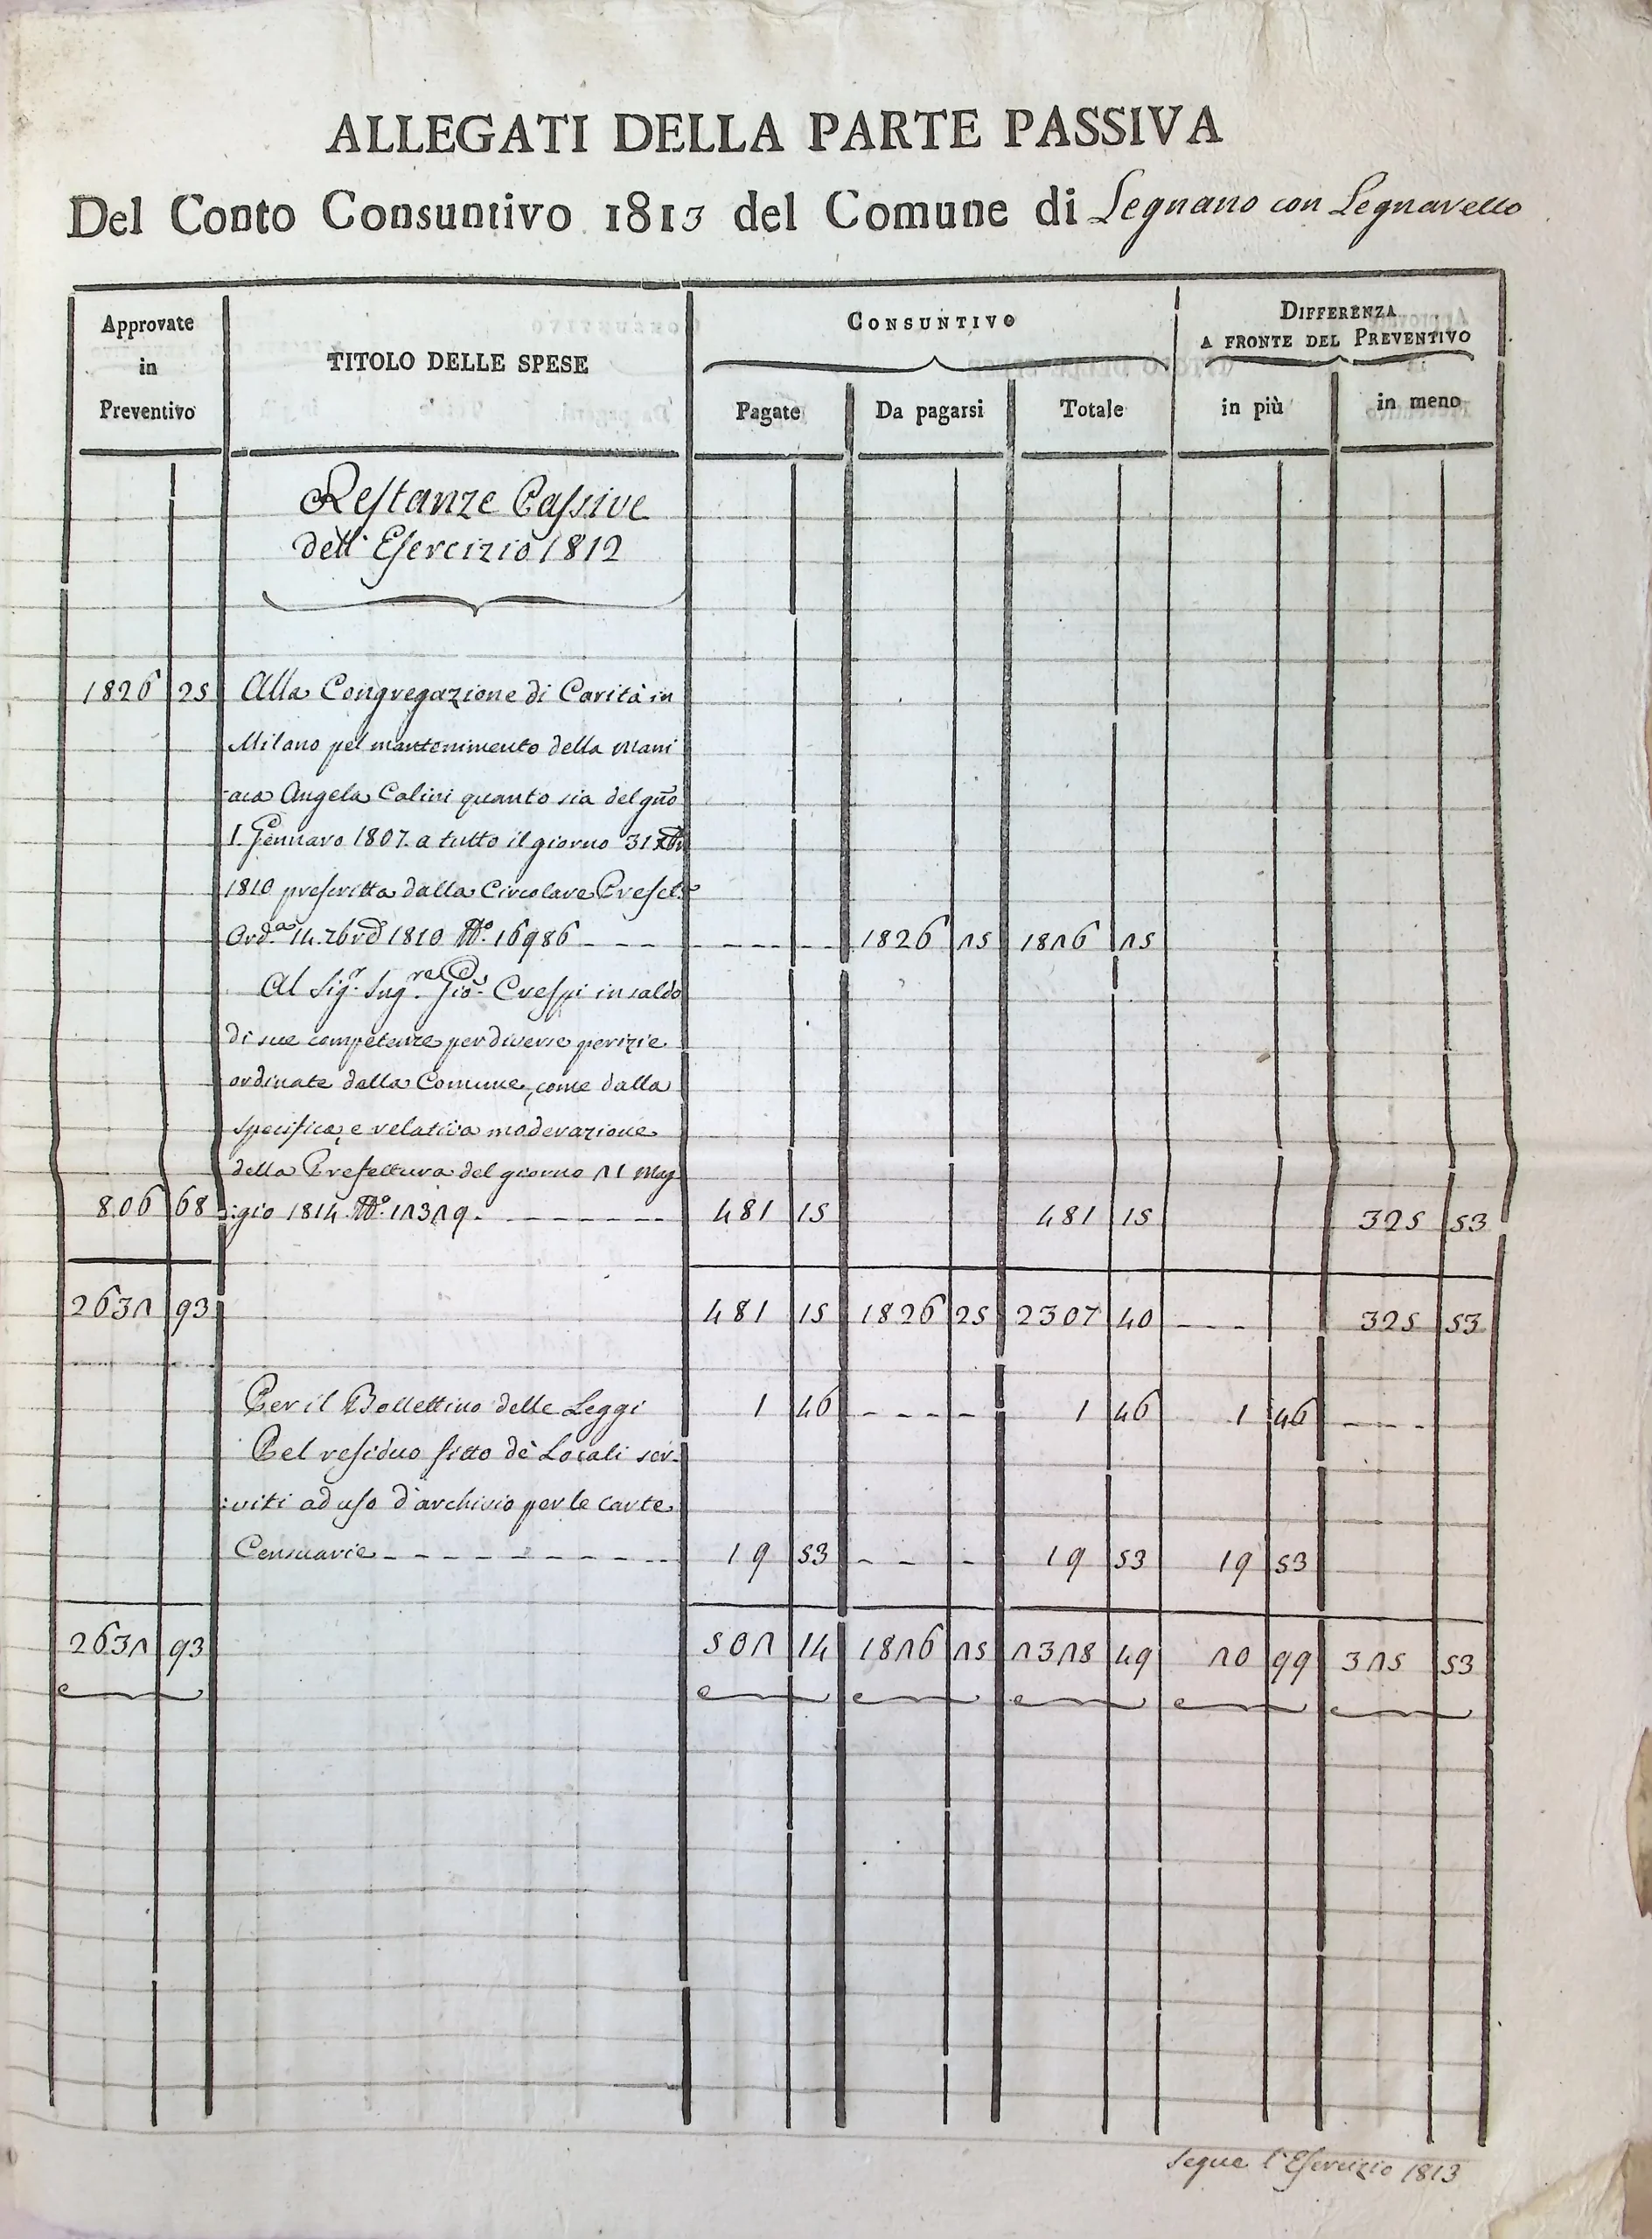 ALLEGATI DELLA PARTE PASSIVA
Del Conto Consuntivo 1813 del Comune di Legnano con Legnarello
Approvate in Preventivo
TITOLO DELLE SPESE
CONSUNTIVO
DIFFERENZA
A FRONTE DEL PREVENTIVO
Pagate Da pagarsi Totale in più in meno
Restanze Passive
dell' Esercizio 1812
1826 25 Alla Congregazione di Carità in
Milano pel mantenimento della Mani
aca Angela Colini quanto sia del gno
1. Gennaro 1807. a tutto il giorno 31 Xbre
1810 prescritta dalla Circolare Prefet.
Ord.a 14. 7bre 1810 N.° 16986 - - - - - - - 1826 25 1826 25
Al Sig.r Ing.re Gio. Crespi in saldo
di sue competenze per diverse perizie
ordinate dalla Comune, come dalla
specifica, e relativa moderazione
della Prefettura del giorno 21 Mag
806 68 :gio 1814 N.° 12329. - - - - - - - 481 15 481 15 325 53
2632 93 481 15 1826 25 2307 40 - - - 325 53
Per il Bollettino delle Leggi 1 46 - - - - 1 46 1 46 - - - -
Pel residuo fitto de' Locali ser-
:viti ad uso d'archivio per le carte
Censuarie - - - - - - - - - 19 53 - - - 19 53 19 53
2632 93 502 14 1826 25 2328 49 20 99 325 53
Segue l'Esercizio 1813